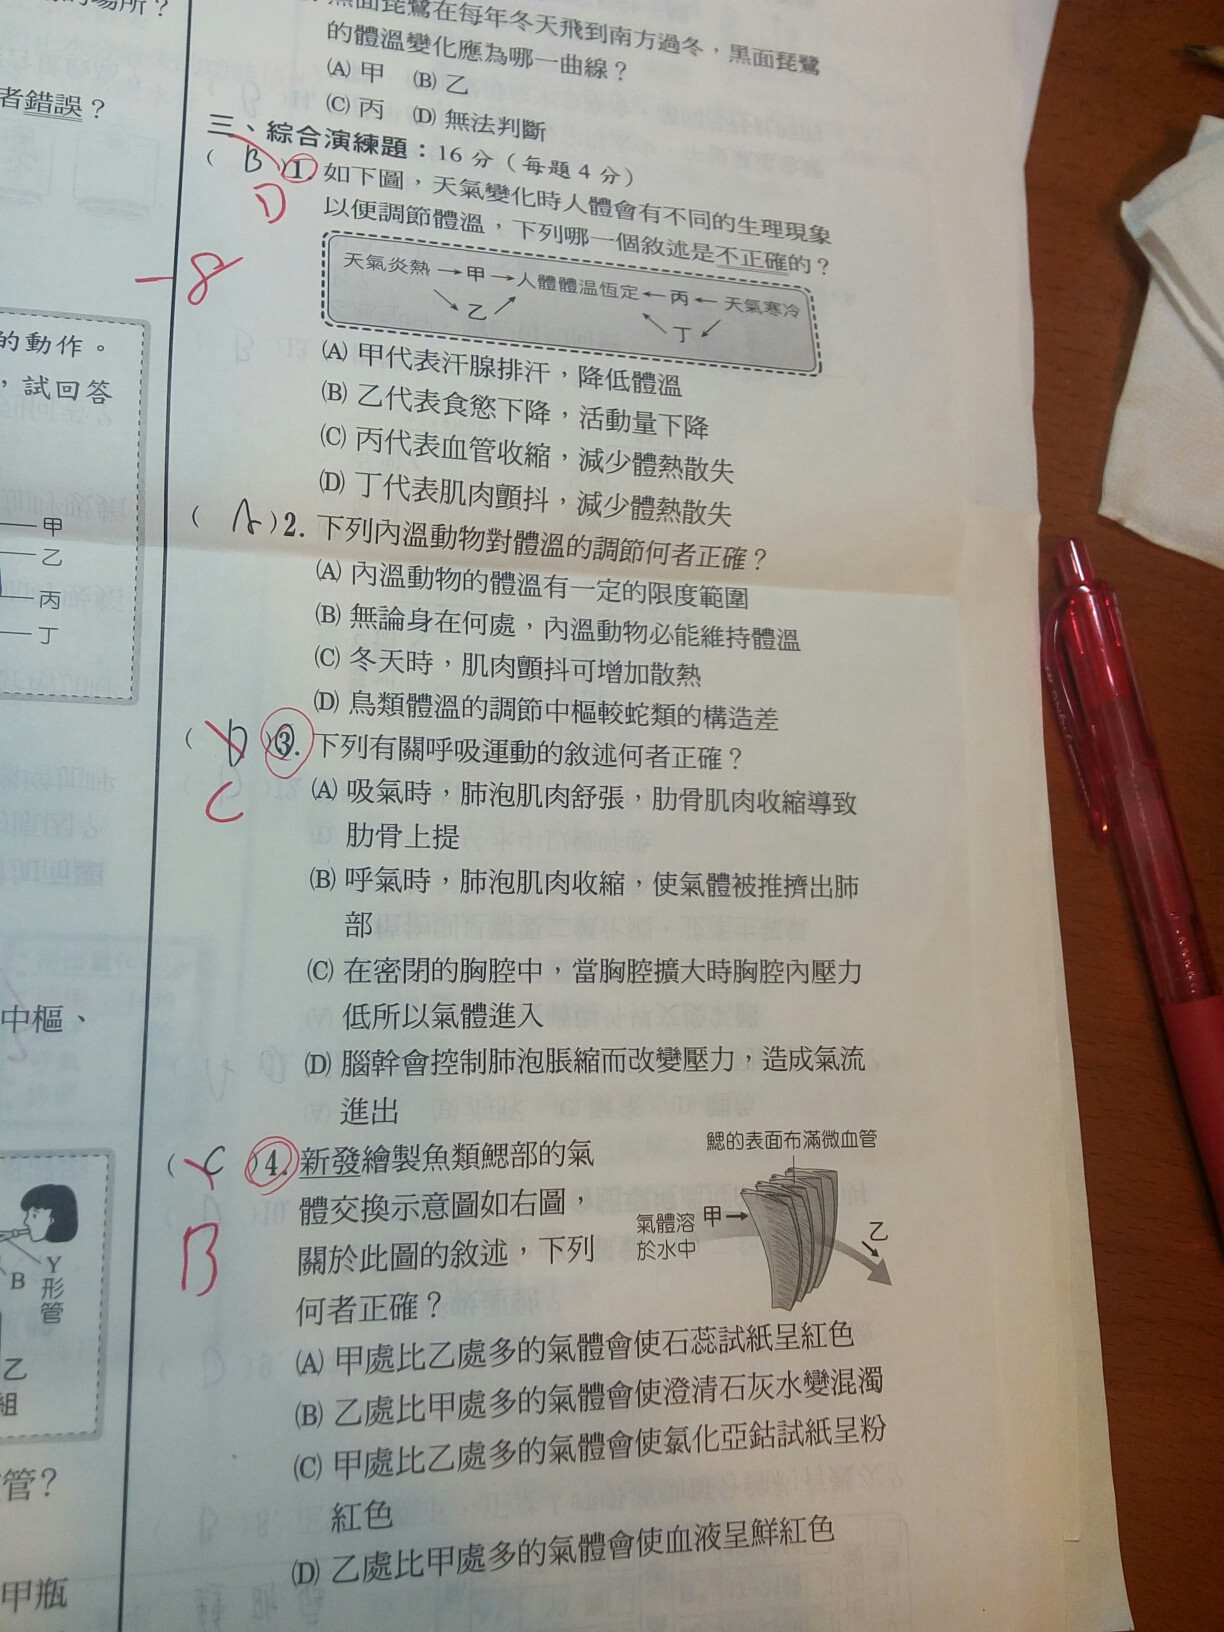 的場所？
者錯誤？
的動作。
，試回答
甲
乙
丙
丁
中樞、
B Y形管
乙
組
管？
甲瓶
黑面琵鷺在每年冬天飛到南方過冬，黑面琵鷺
的體溫變化應為哪一曲線？
(A) 甲 (B) 乙
(C) 丙 (D) 無法判斷
三、綜合演練題：16 分（每題 4 分）
( B )1. 如下圖，天氣變化時人體會有不同的生理現象
D
以便調節體溫，下列哪一個敘述是不正確的？
-8
天氣炎熱→甲→人體體溫恆定←丙←天氣寒冷
乙 丁
(A) 甲代表汗腺排汗，降低體溫
(B) 乙代表食慾下降，活動量下降
(C) 丙代表血管收縮，減少體熱散失
(D) 丁代表肌肉顫抖，減少體熱散失
( A )2. 下列內溫動物對體溫的調節何者正確？
(A) 內溫動物的體溫有一定的限度範圍
(B) 無論身在何處，內溫動物必能維持體溫
(C) 冬天時，肌肉顫抖可增加散熱
(D) 鳥類體溫的調節中樞較蛇類的構造差
( D )3. 下列有關呼吸運動的敘述何者正確？
C
(A) 吸氣時，肺泡肌肉舒張，肋骨肌肉收縮導致
肋骨上提
(B) 呼氣時，肺泡肌肉收縮，使氣體被推擠出肺
部
(C) 在密閉的胸腔中，當胸腔擴大時胸腔內壓力
低所以氣體進入
(D) 腦幹會控制肺泡脹縮而改變壓力，造成氣流
進出
( C )4. 新發繪製魚類鰓部的氣
B
體交換示意圖如右圖，
關於此圖的敘述，下列
何者正確？
鰓的表面布滿微血管
氣體溶
於水中
甲→
乙
(A) 甲處比乙處多的氣體會使石蕊試紙呈紅色
(B) 乙處比甲處多的氣體會使澄清石灰水變混濁
(C) 甲處比乙處多的氣體會使氯化亞鈷試紙呈粉
紅色
(D) 乙處比甲處多的氣體會使血液呈鮮紅色